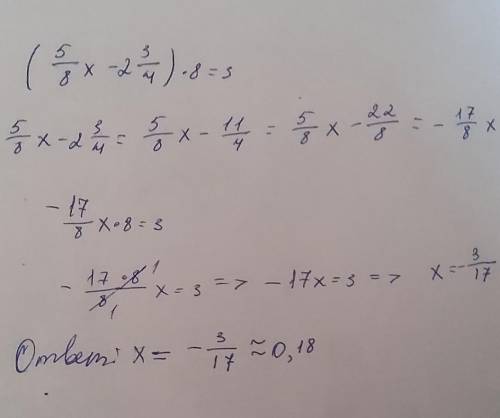 (5/8 x - 2 3/4) · 8 = 3
5/8 x - 2 3/4 = 5/8 x - 11/4 = 5/8 x - 22/8 = - 17/8 x
- 17/8 x · 8 = 3
- 17 · 8 1/8 1 x = 3 => - 17x = 3 => x = - 3/17
Ответ: x = - 3/17 ≈ 0,18